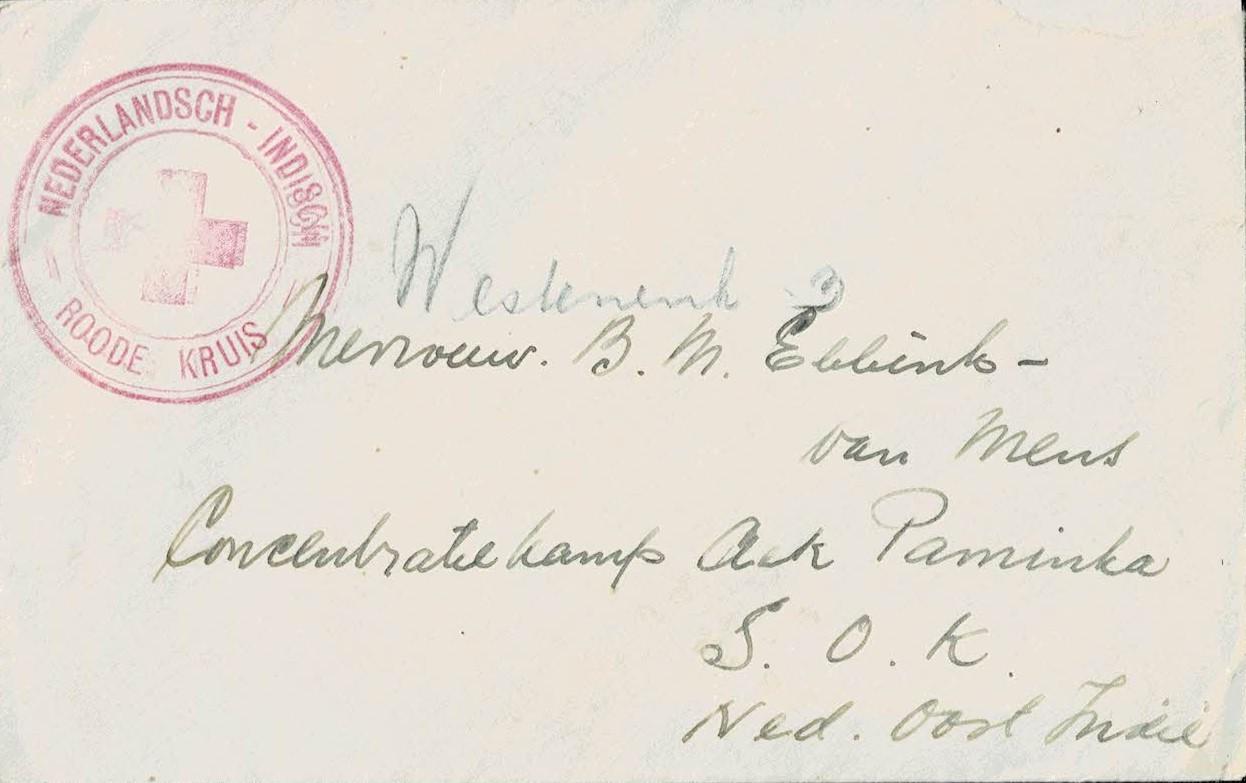 NEDERLANDSCH - INDISCH
ROODE KRUIS
Westenenk 2
Mevrouw. B. M. Ebbink-
van Mens
Concentratiekamp Aek Paminka
S. O. K.
Ned. Oost Indië